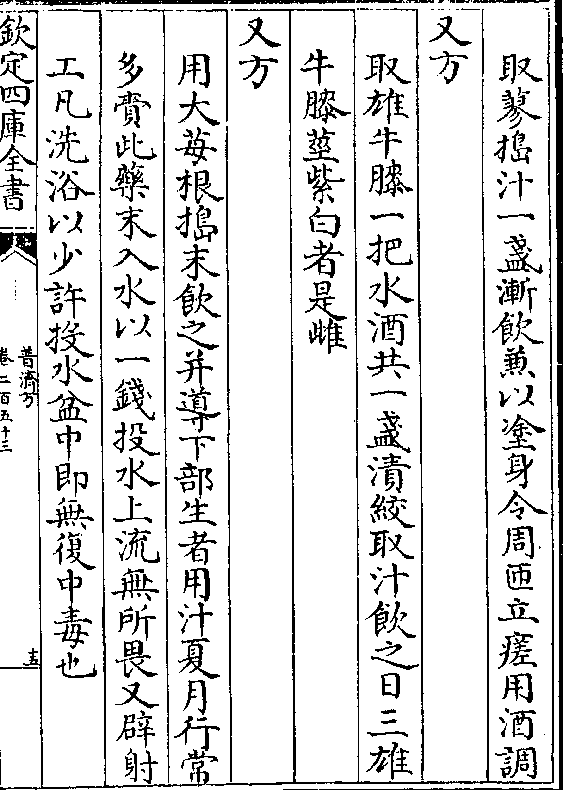 取蓼搗汁一盞漸飲兼以塗身令周匝立瘥用酒調
又方
取雄牛膝一把水酒共一盞漬絞取汁飲之日三雄
牛膝莖紫白者是雌
又方
用大莓根搗末飲之并導下部生者用汁夏月行常
多賫此藥末入水以一錢投水上流無所畏又辟射
工凡洗浴以少許投水盆中即無復中毒也
欽定四庫全書
普濟方
卷二百五十三
十五